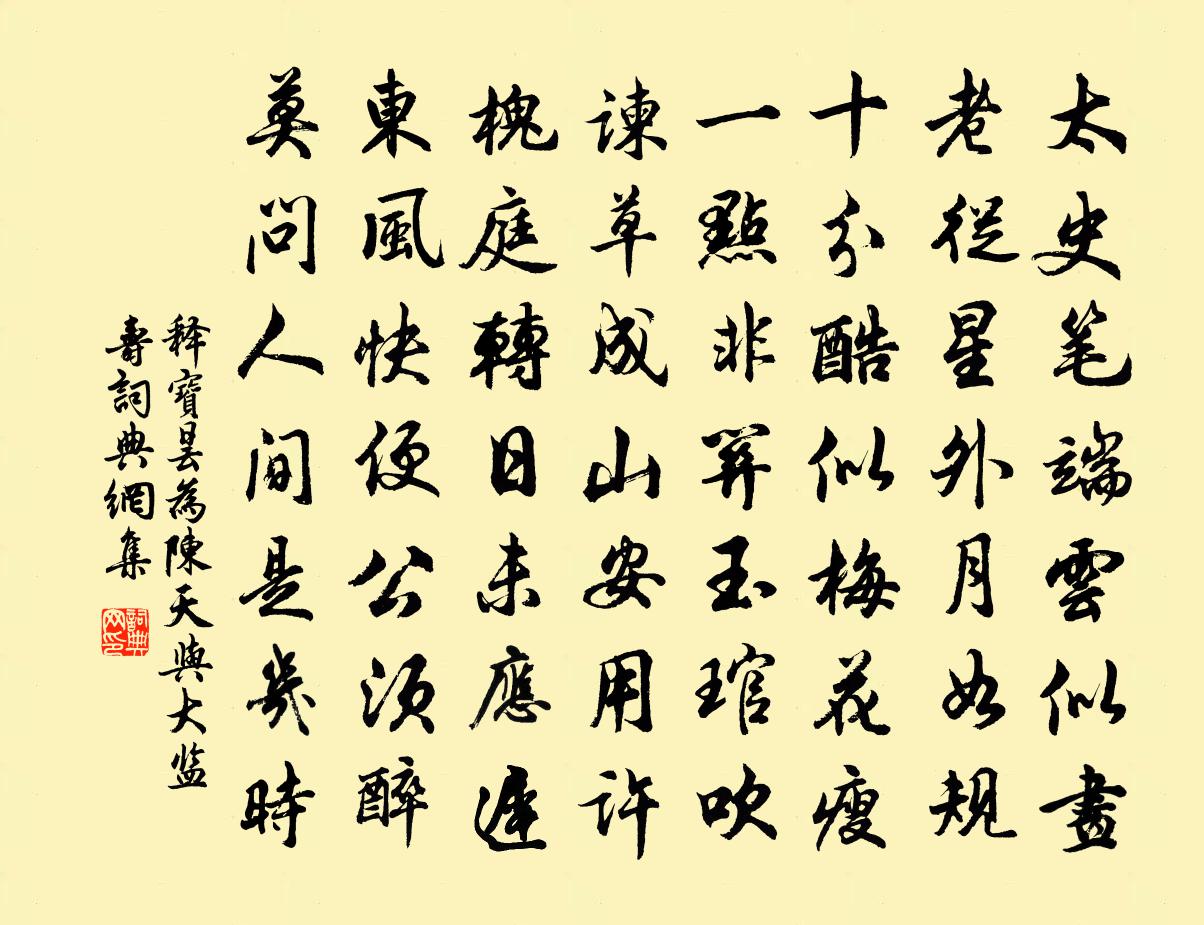 太史笔端雲似畫
老從星外月如規
十分酷似梅花瘦
一點非關玉琯吹
諫草成山安用許
槐庭轉日未應遲
東風快便公須醉
莫問人間是幾時
释寶曇為陳天與大监
壽詞典網集
詞典网印